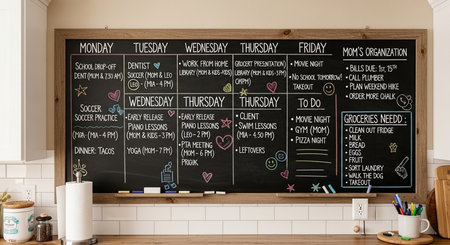 MONDAY
SCHOOL DROP-OFF
DENT (MOM & 7:30 AM)
SOCCER
SOCCER PRACTICE
(MIA - (MIA - 4 PM)
DINNER: TACOS
TUESDAY
DENTIST
SOCCER (MOM & LEO
LEO - (MIA - 4 PM)
WEDNESDAY
• WORK FROM HOME
LIBRARY (MOM & KIDS-KIDS)
THURSDAY
GROCERY PRESENTATION
LIBRARY (MOM & KIDS - 3 PM)
(MPM)
FRIDAY
• MOVIE NIGHT
• NO SCHOOL TOMORROW!
TAKEOUT
WEDNESDAY
• EARLY RELEASE
PIANO LESSONS
(MOM & KIDS - 3 PM)
YOGA (MOM - 7 PM)
THURSDAY
• EARLY RELEASE
PIANO LESSONS
(LEO - 2 PM)
• PTA MEETING
(MOM - 6 PM)
THURSDAY
• CLIENT
• SWIM LESSONS
(MIA - 4:30 PM)
• LEFTOVERS
TO DO
• MOVIE NIGHT
• GYM (MOM)
• PIZZA NIGHT
MOM'S ORGANIZATION
• BILLS DUE: 1ST, 15TH
• CALL PLUMBER
• PLAN WEEKEND HIKE
• ORDER MORE CHALK
GROCERIES NEED:
• CLEAN OUT FRIDGE
• MILK
• BREAD
• EGGS
• FRUIT
• SORT LAUNDRY
• WALK THE DOG
• TAKEOUT